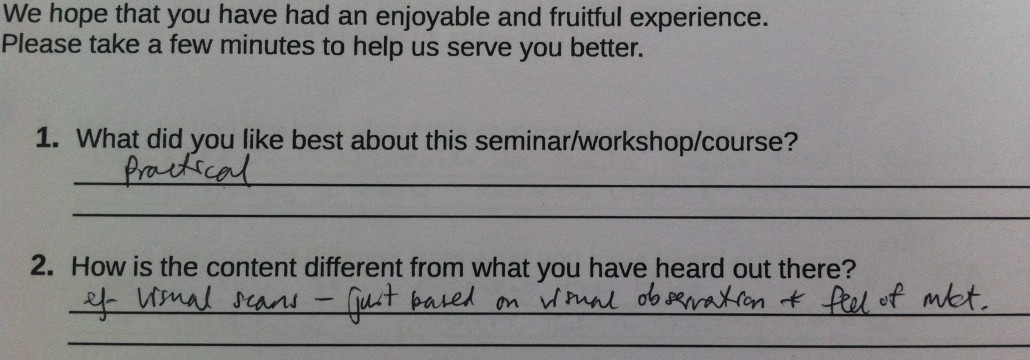 We hope that you have had an enjoyable and fruitful experience.
Please take a few minutes to help us serve you better.
1. What did you like best about this seminar/workshop/course?
Practical
2. How is the content different from what you have heard out there?
eg- visual scans - just based on visual observation & feel of mkt.